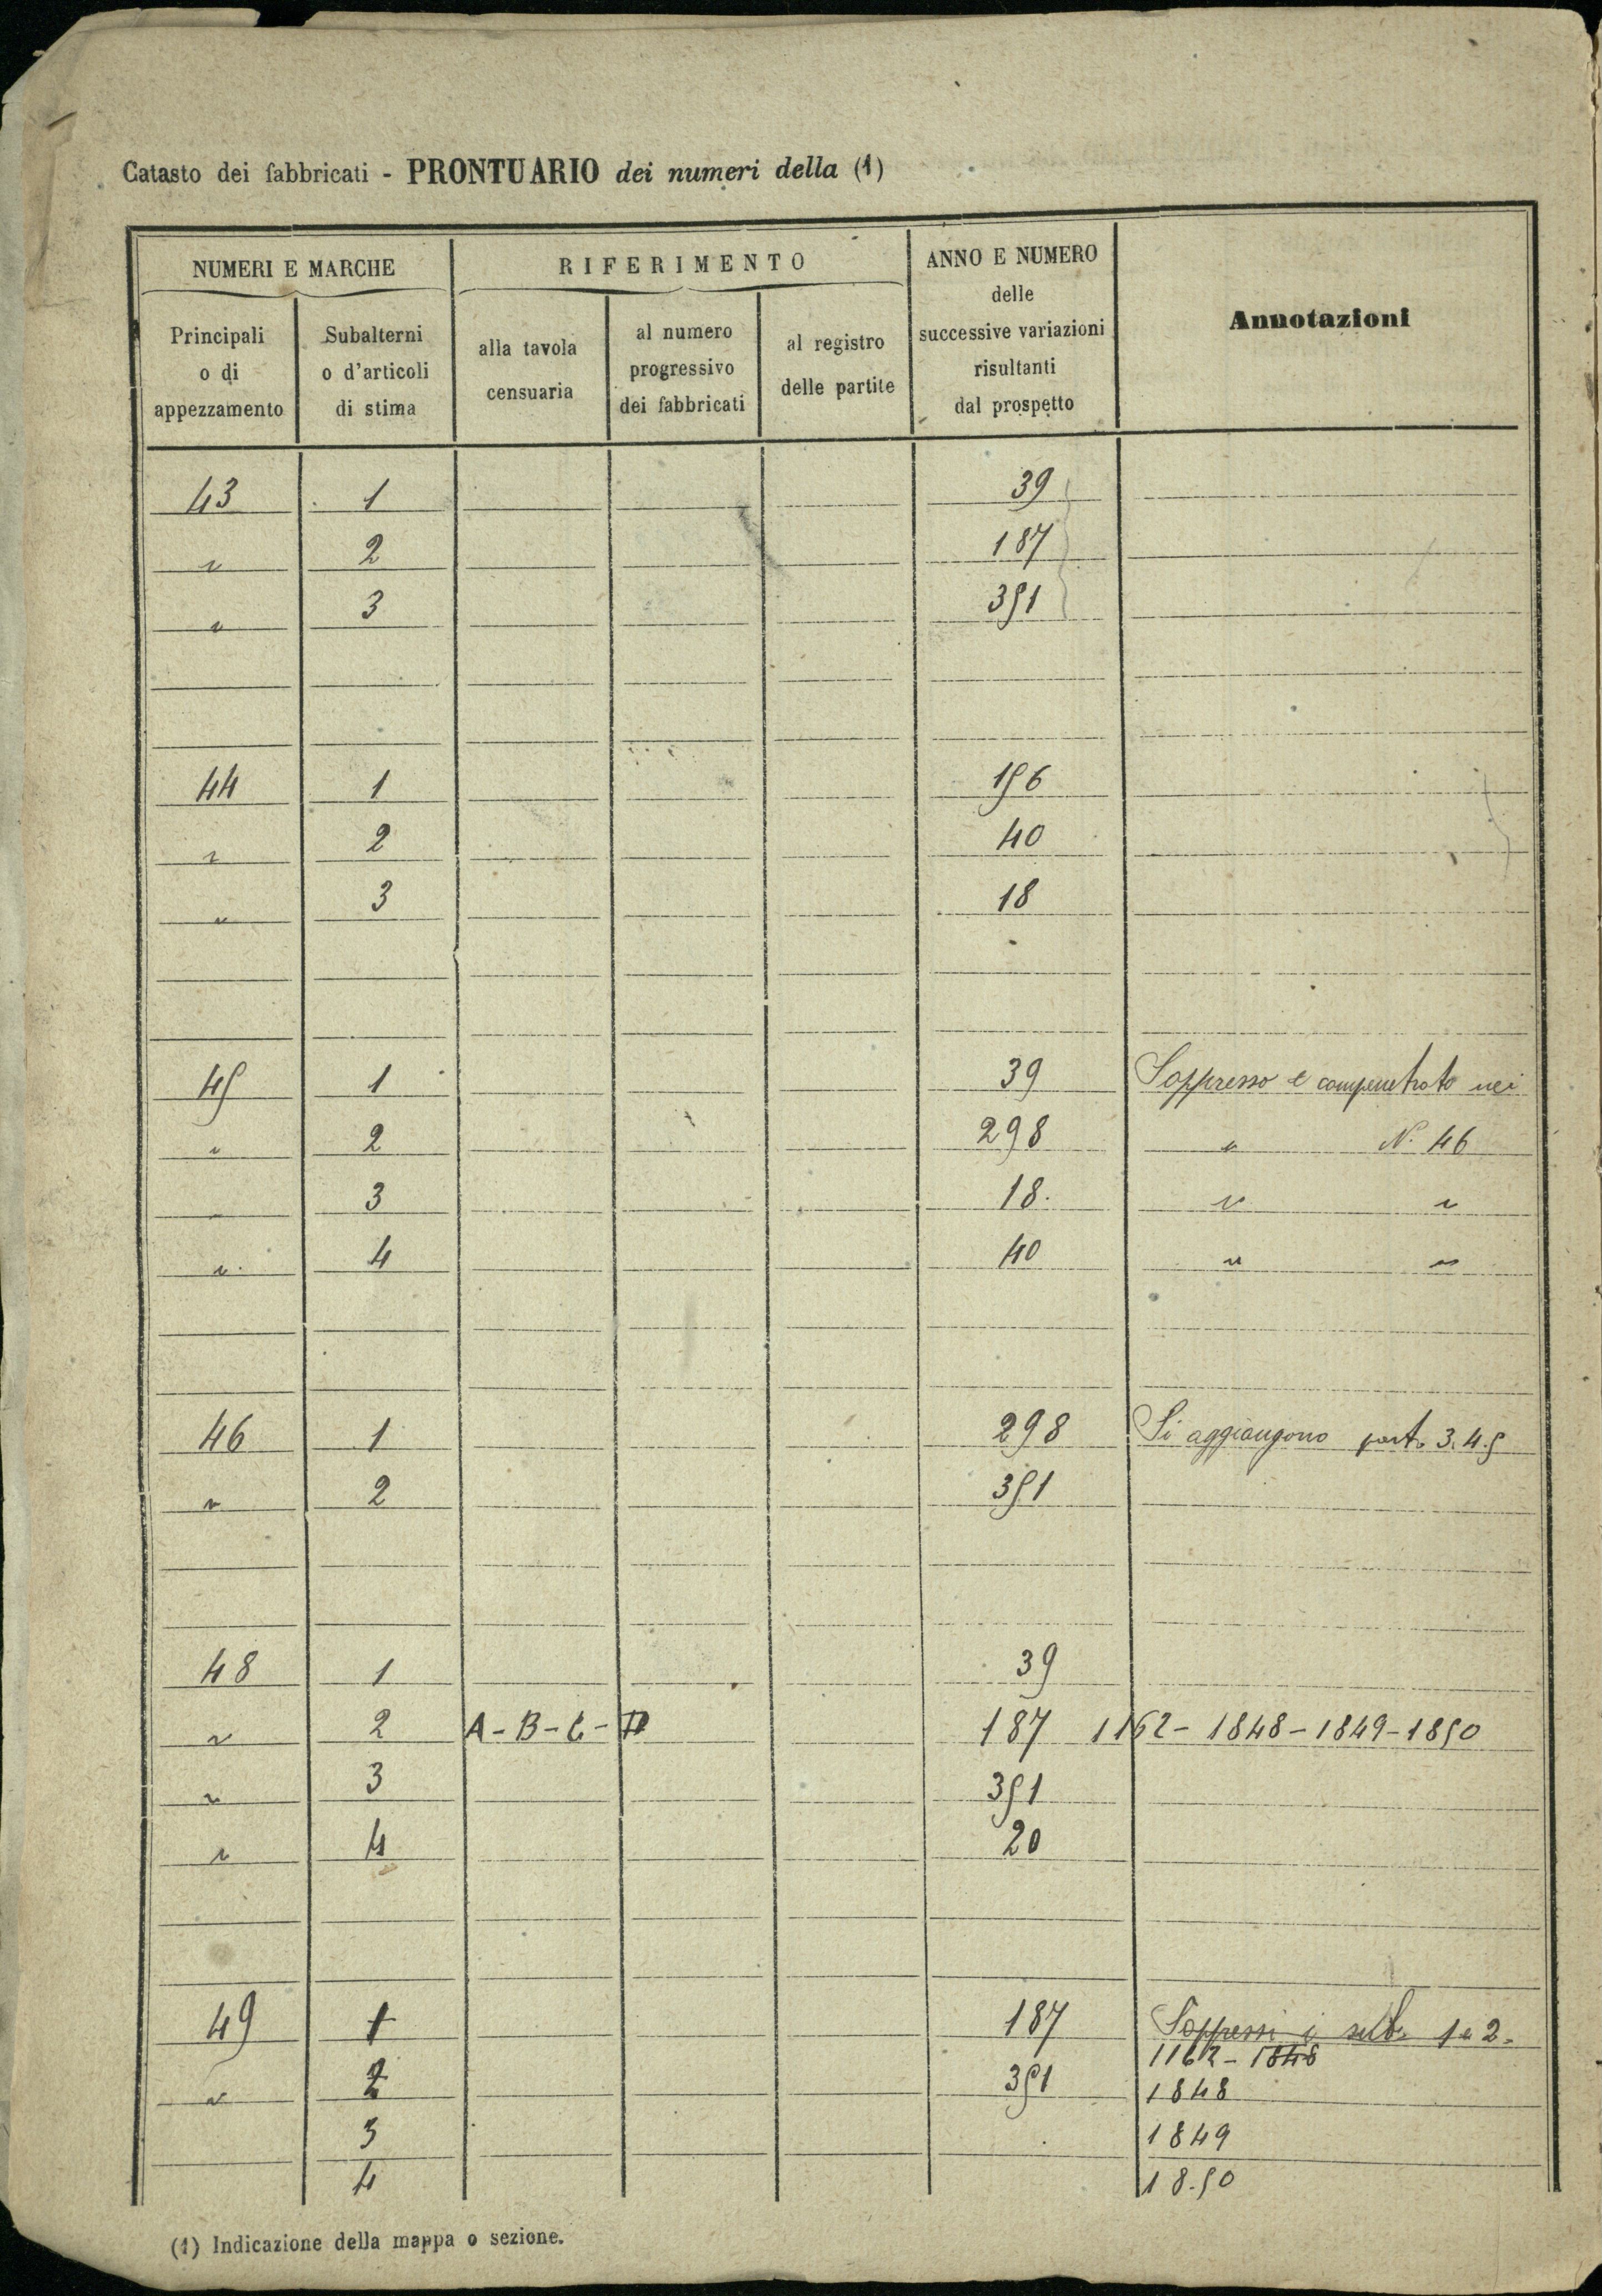 Catasto dei fabbricati - PRONTUARIO dei numeri della (1)
NUMERI E MARCHE
RIFERIMENTO
ANNO E NUMERO
delle
successive variazioni
risultanti
dal prospetto
Annotazioni
Principali
o di
appezzamento
Subalterni
o d'articoli
di stima
alla tavola
censuaria
al numero
progressivo
dei fabbricati
al registro
delle partite
43 1 39
" 2 187
" 3 351
44 1 156
" 2 40
" 3 18
45 1 39 Soppresso e compenetrato nei
" 2 298 " N. 46
" 3 18. " "
" 4 40 " "
46 1 298 Si aggiungono part. 3.4.5
" 2 351
48 1 39
" 2 A-B-C-D 187 1162-1848-1849-1850
" 3 351
" 4 20
49 1 187 Soppressi i sub. 1 e 2.
1162-1848
" 2 351 1848
3 1849
4 18.50
(1) Indicazione della mappa o sezione.